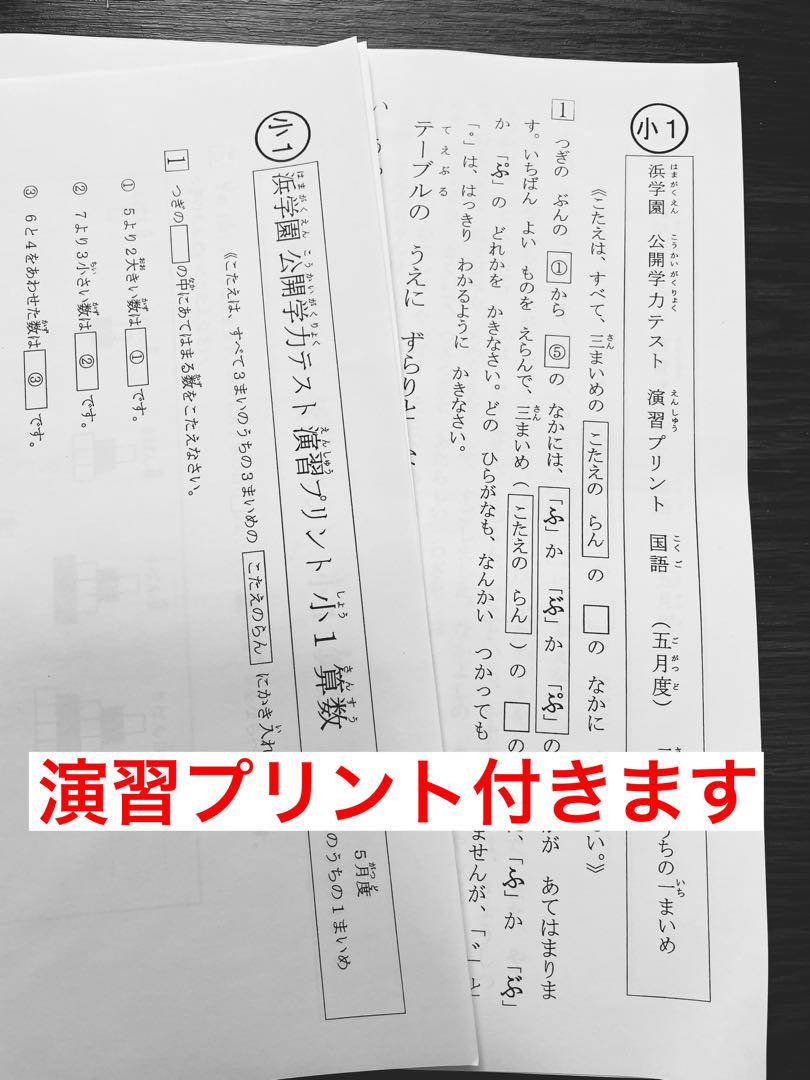 小1
浜学園 公開学力テスト 演習プリント 国語 (五月度)
うちの一まいめ
《こたえは、すべて、三まいめの こたえの らん の □ の なかに
い。》
1 つぎの ぶんの ①から ⑤の なかには、「ふ」か「ぶ」か「ぷ」の
が あてはまりま
す。いちばん よい ものを えらんで、三まいめ(こたえの らん)の □の
「ふ」か「ぶ」
か「ぷ」の どれかを かきなさい。どの ひらがなも、なんかい つかっても
ませんが、「゛」と
「゜」は、はっきり わかるように かきなさい。
テーブルの うえに ずらりと
小1
浜学園 公開学力テスト 演習プリント 小1 算数
5月度
のうちの1まいめ
《こたえは、すべて3まいのうちの3まいめの こたえのらん にかき入れ
1 つぎの□の中にあてはまる数をこたえなさい。
① 5より2大きい数は ① です。
② 7より3小さい数は ② です。
③ 6と4をあわせた数は ③ です。
演習プリント付きます